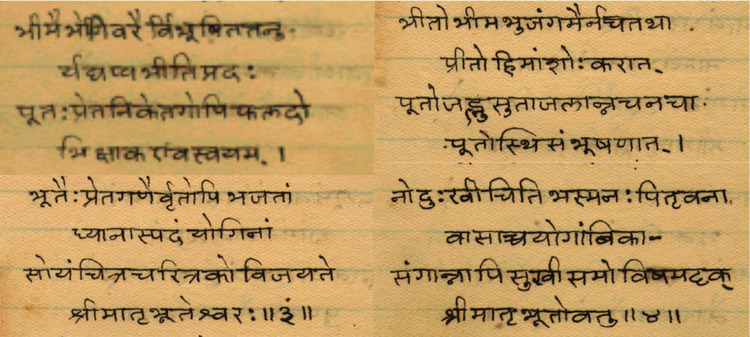 भीमैर्भोगिवरैर्विभूषिततनु-
र्यद्यप्यभीतिप्रदः
पूतःप्रेतनिकेतगोपिफलदो
भिक्षाकरावस्वयम्।
भूतैःप्रेतगणैर्वृतोपिभजतां
ध्यानास्पदंयोगिनां
सोयंचित्रचरित्रकोविजयते
श्रीमातृभूतेश्वरः॥३॥
भीतोभीमभुजंगमैर्नचतथा
प्रीतोहिमांशोःकरात्
पूतोजह्नुसुताजलान्नचनचा-
पूतोस्थिसंभूषणात्।
नोदुःखीचितिभस्मनःपितृवना
वासाच्चयोगांबिका-
संगान्नापिसुखीसमोविषमदृक्
श्रीमातृभूतोवतु॥४॥